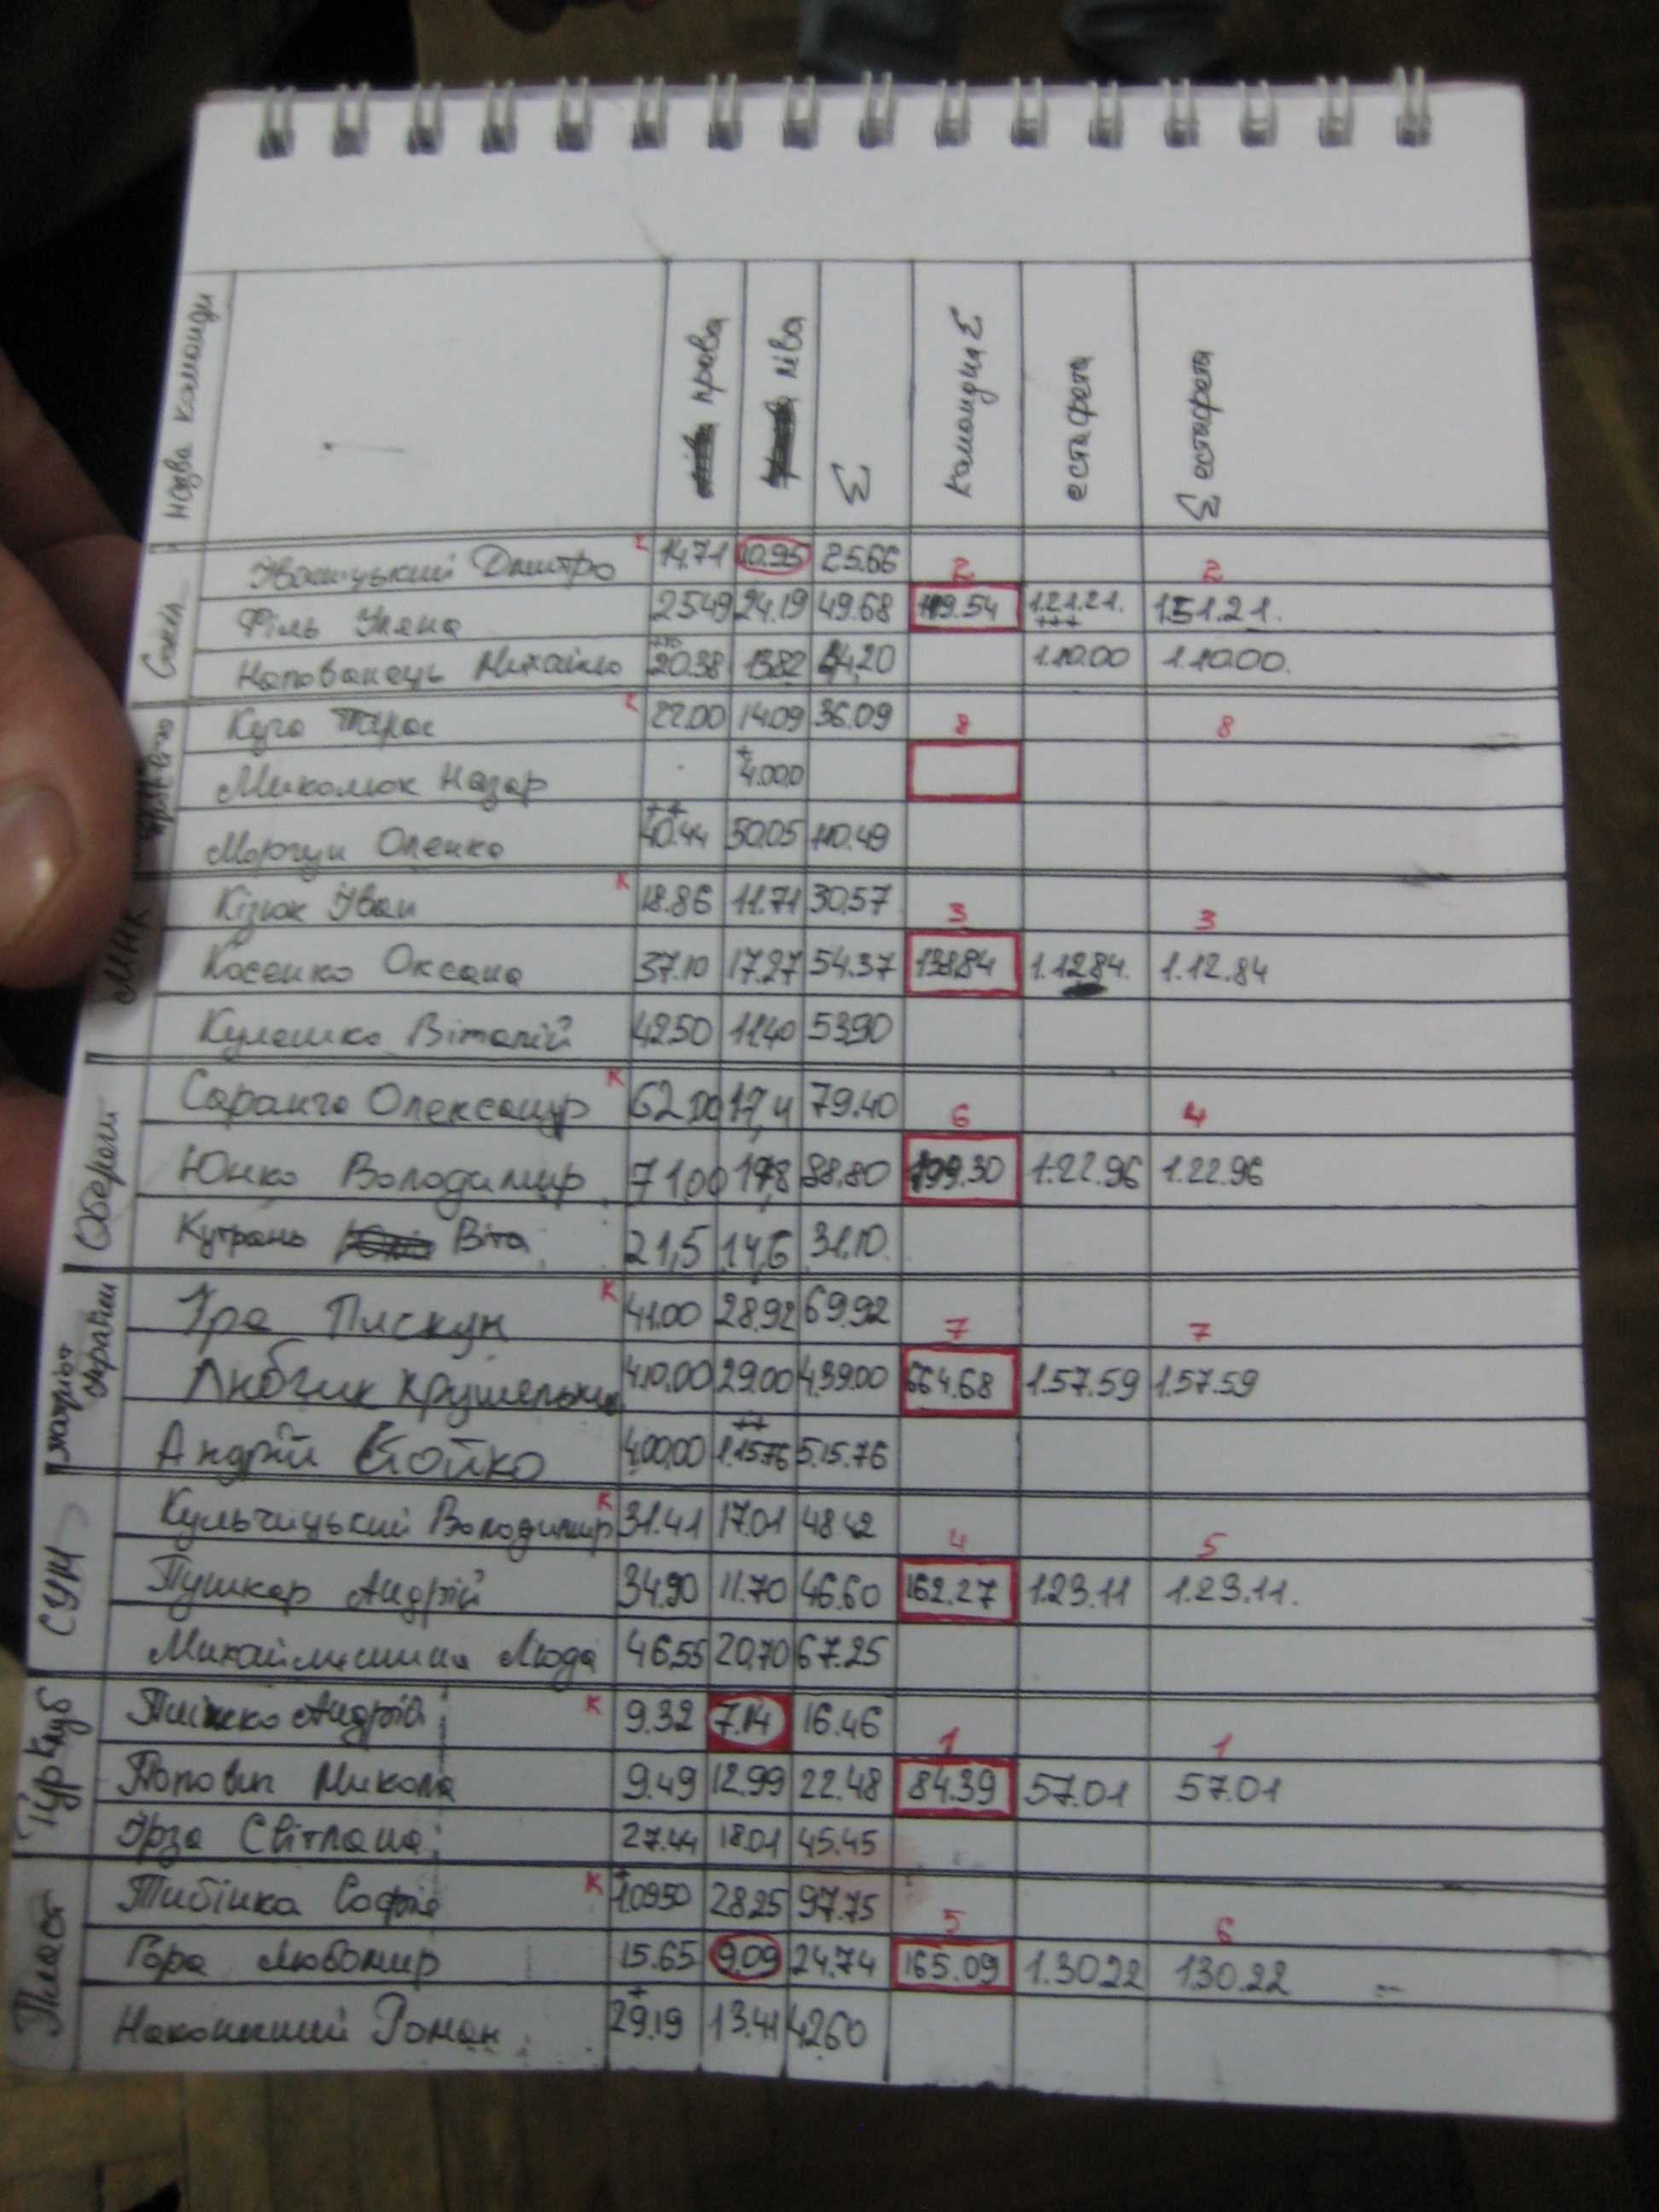 Назва команди права ліва Σ Командна Σ естафета Σ естафета
Івасицький Дмитро К 14.71 10.95 25.66 2 2
Філь Уляна 25.49 24.19 49.68 119.54 1.21.21. +++ 1.51.21.
Михайло 20.38 13.82 34,20 1.10.00 1.10.00.
Куча Тарас К 22.00 14.09 36.09 8 8
Миколюк Назар + 4.00.0
Моргун Оленка ++ 40.44 50.05 110.49
МНК Кізюк Іван К 18.86 11.71 30.57 3 3
Косенко Оксана 37.10 17.27 54.37 138.84 1.12.84. 1.12.84
Кулешко Віталій 42.50 11.40 53.90
Оберіг Саранча Олександр К 62.00 17,4 79.40 6 4
Юнко Володимир 71.00 17,8 88.80 199.30 1.22.96 1.22.96
Кутрань Віта 21,5 14,6 31.10.
патріот україни Іра Пискун К 41.00 28.92 69.92 7 7
Любчик 4.10.00 29.00 4.39.00 664.68 1.57.59 1.57.59
Андрій Бойко 4.00.00 ++ 1.15.76 5.15.76
СУМ Кульчицький Володимир К 31.41 17.01 48.42 4 5
Пушкар Андрій 34.90 11.70 46.60 162.27 1.23.11 1.23.11.
Люда 46.55 20.70 67.25
Турклуб Андрій К 9.32 7.14 16.46 1 1
Попович Микола 9.49 12.99 22.48 84.39 57.01 57.01
Ірза Світлана 27.44 18.01 45.45
Пласт Тибінка Софія К 1.09.50 28.25 97.75 5 6
Гора Любомир 15.65 9.09 24.74 165.09 1.30.22 1.30.22
Роман + 29.19 13.41 42.60